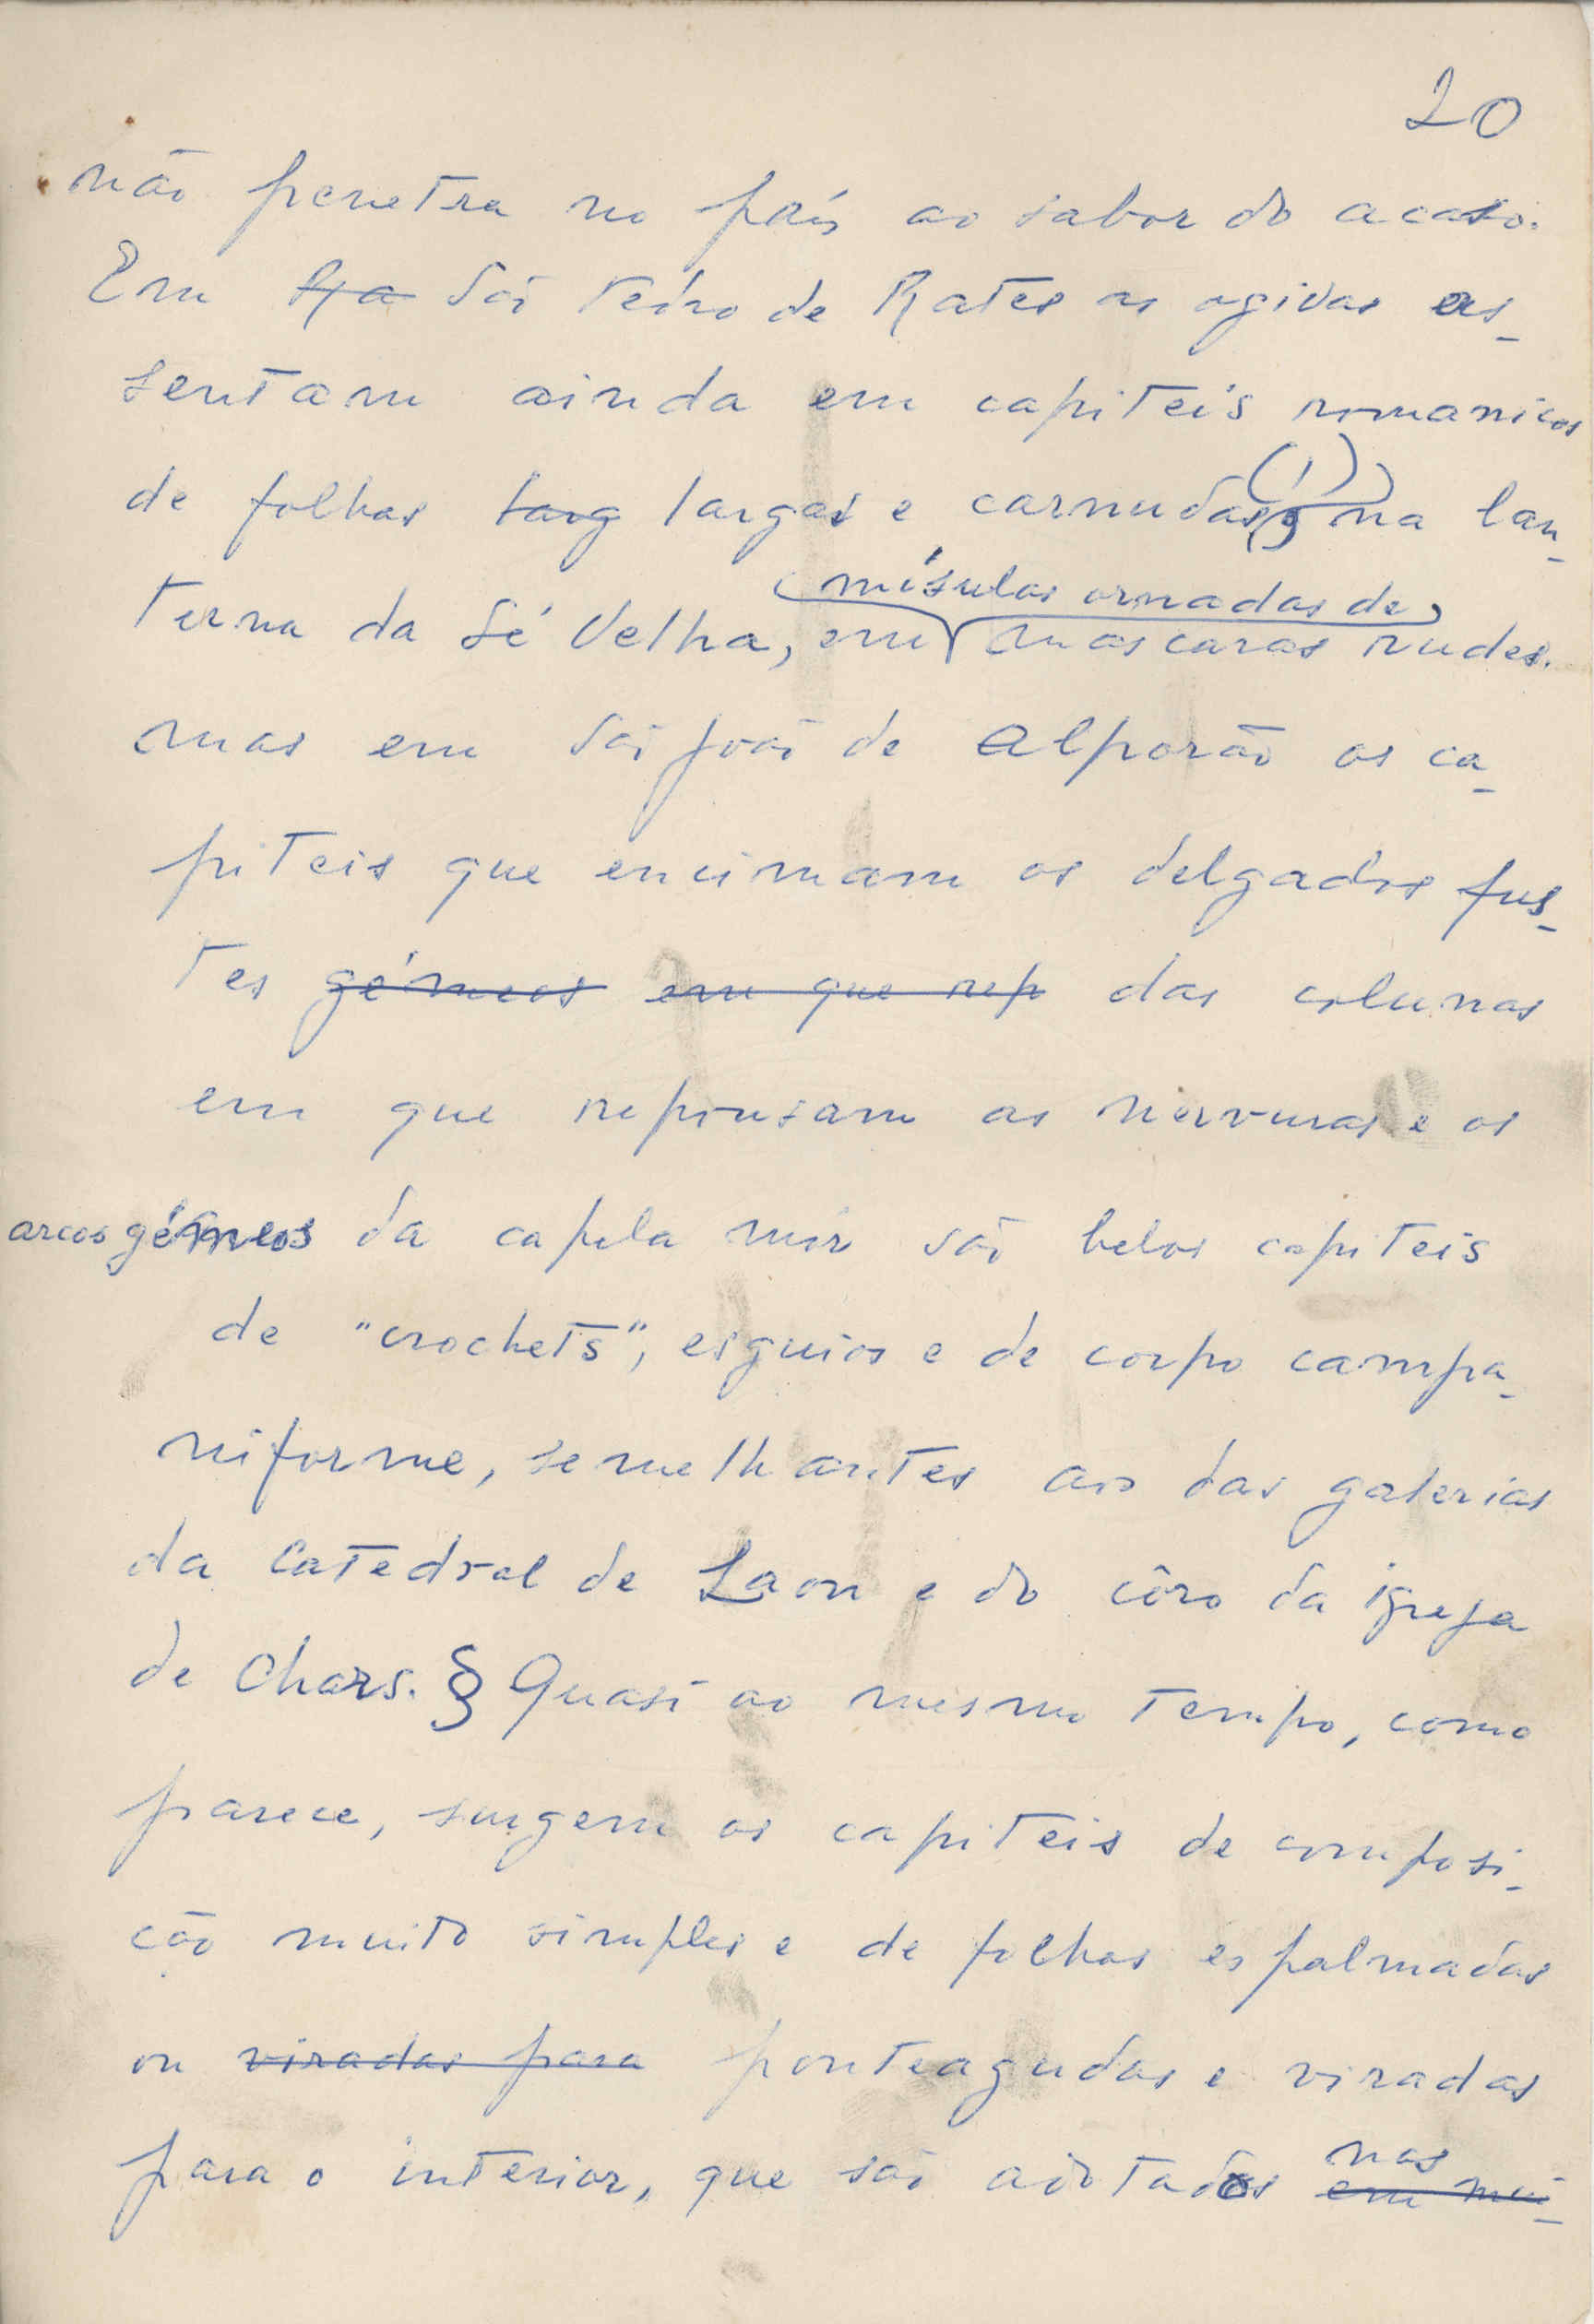 20
não penetra no país ao sabor do acaso.
Em Ra São Pedro de Rates as ogivas as-
sentam ainda em capiteis romanicos
de folhas targ largas e carnudas (1), na lan-
mísulas ornadas de
terna da Sé Velha, em mascaras rudes.
mas em São João de Alporão os ca-
piteis que encimam os delgados fus-
tes gémeos em que rep das colunas
em que repousam as nervuras e os
arcos gémeos da capela mór são belos capiteis
de "crochets", esguios e de corpo campa-
niforme, semelhantes aos das galerias
da Catedral de Laon e do côro da igreja
de Chars. § Quasi ao mesmo tempo, como
parece, surgem os capiteis de composi-
ção muito simples e de folhas espalmadas
ou viradas para ponteagudas e viradas
nas
para o interior, que são adotados em mui-